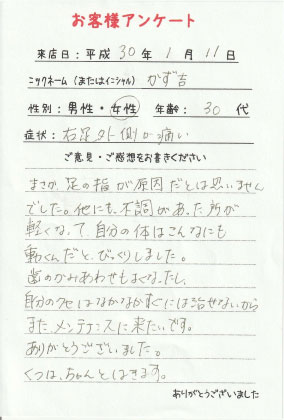 お客様アンケート
来店日:平成 30 年 1 月 11 日
ニックネーム(またはイニシャル) かず吉
性別:男性・女性 年齢: 30 代
症状: 右足外側の痛い
ご意見・ご感想をお書きください
まさか、足の指が原因だとは思いません
でした。他にも、不調があった所が
軽くなって自分の体はこんなにも
動くんだと、びっくりしました。
歯のかみあわせもよくなったし、
自分のクセはなかなかすぐには治せないから
また、メンテナンスに来たいです。
ありがとうございました。
くつは、ちゃんとはきます。
ありがとうございました